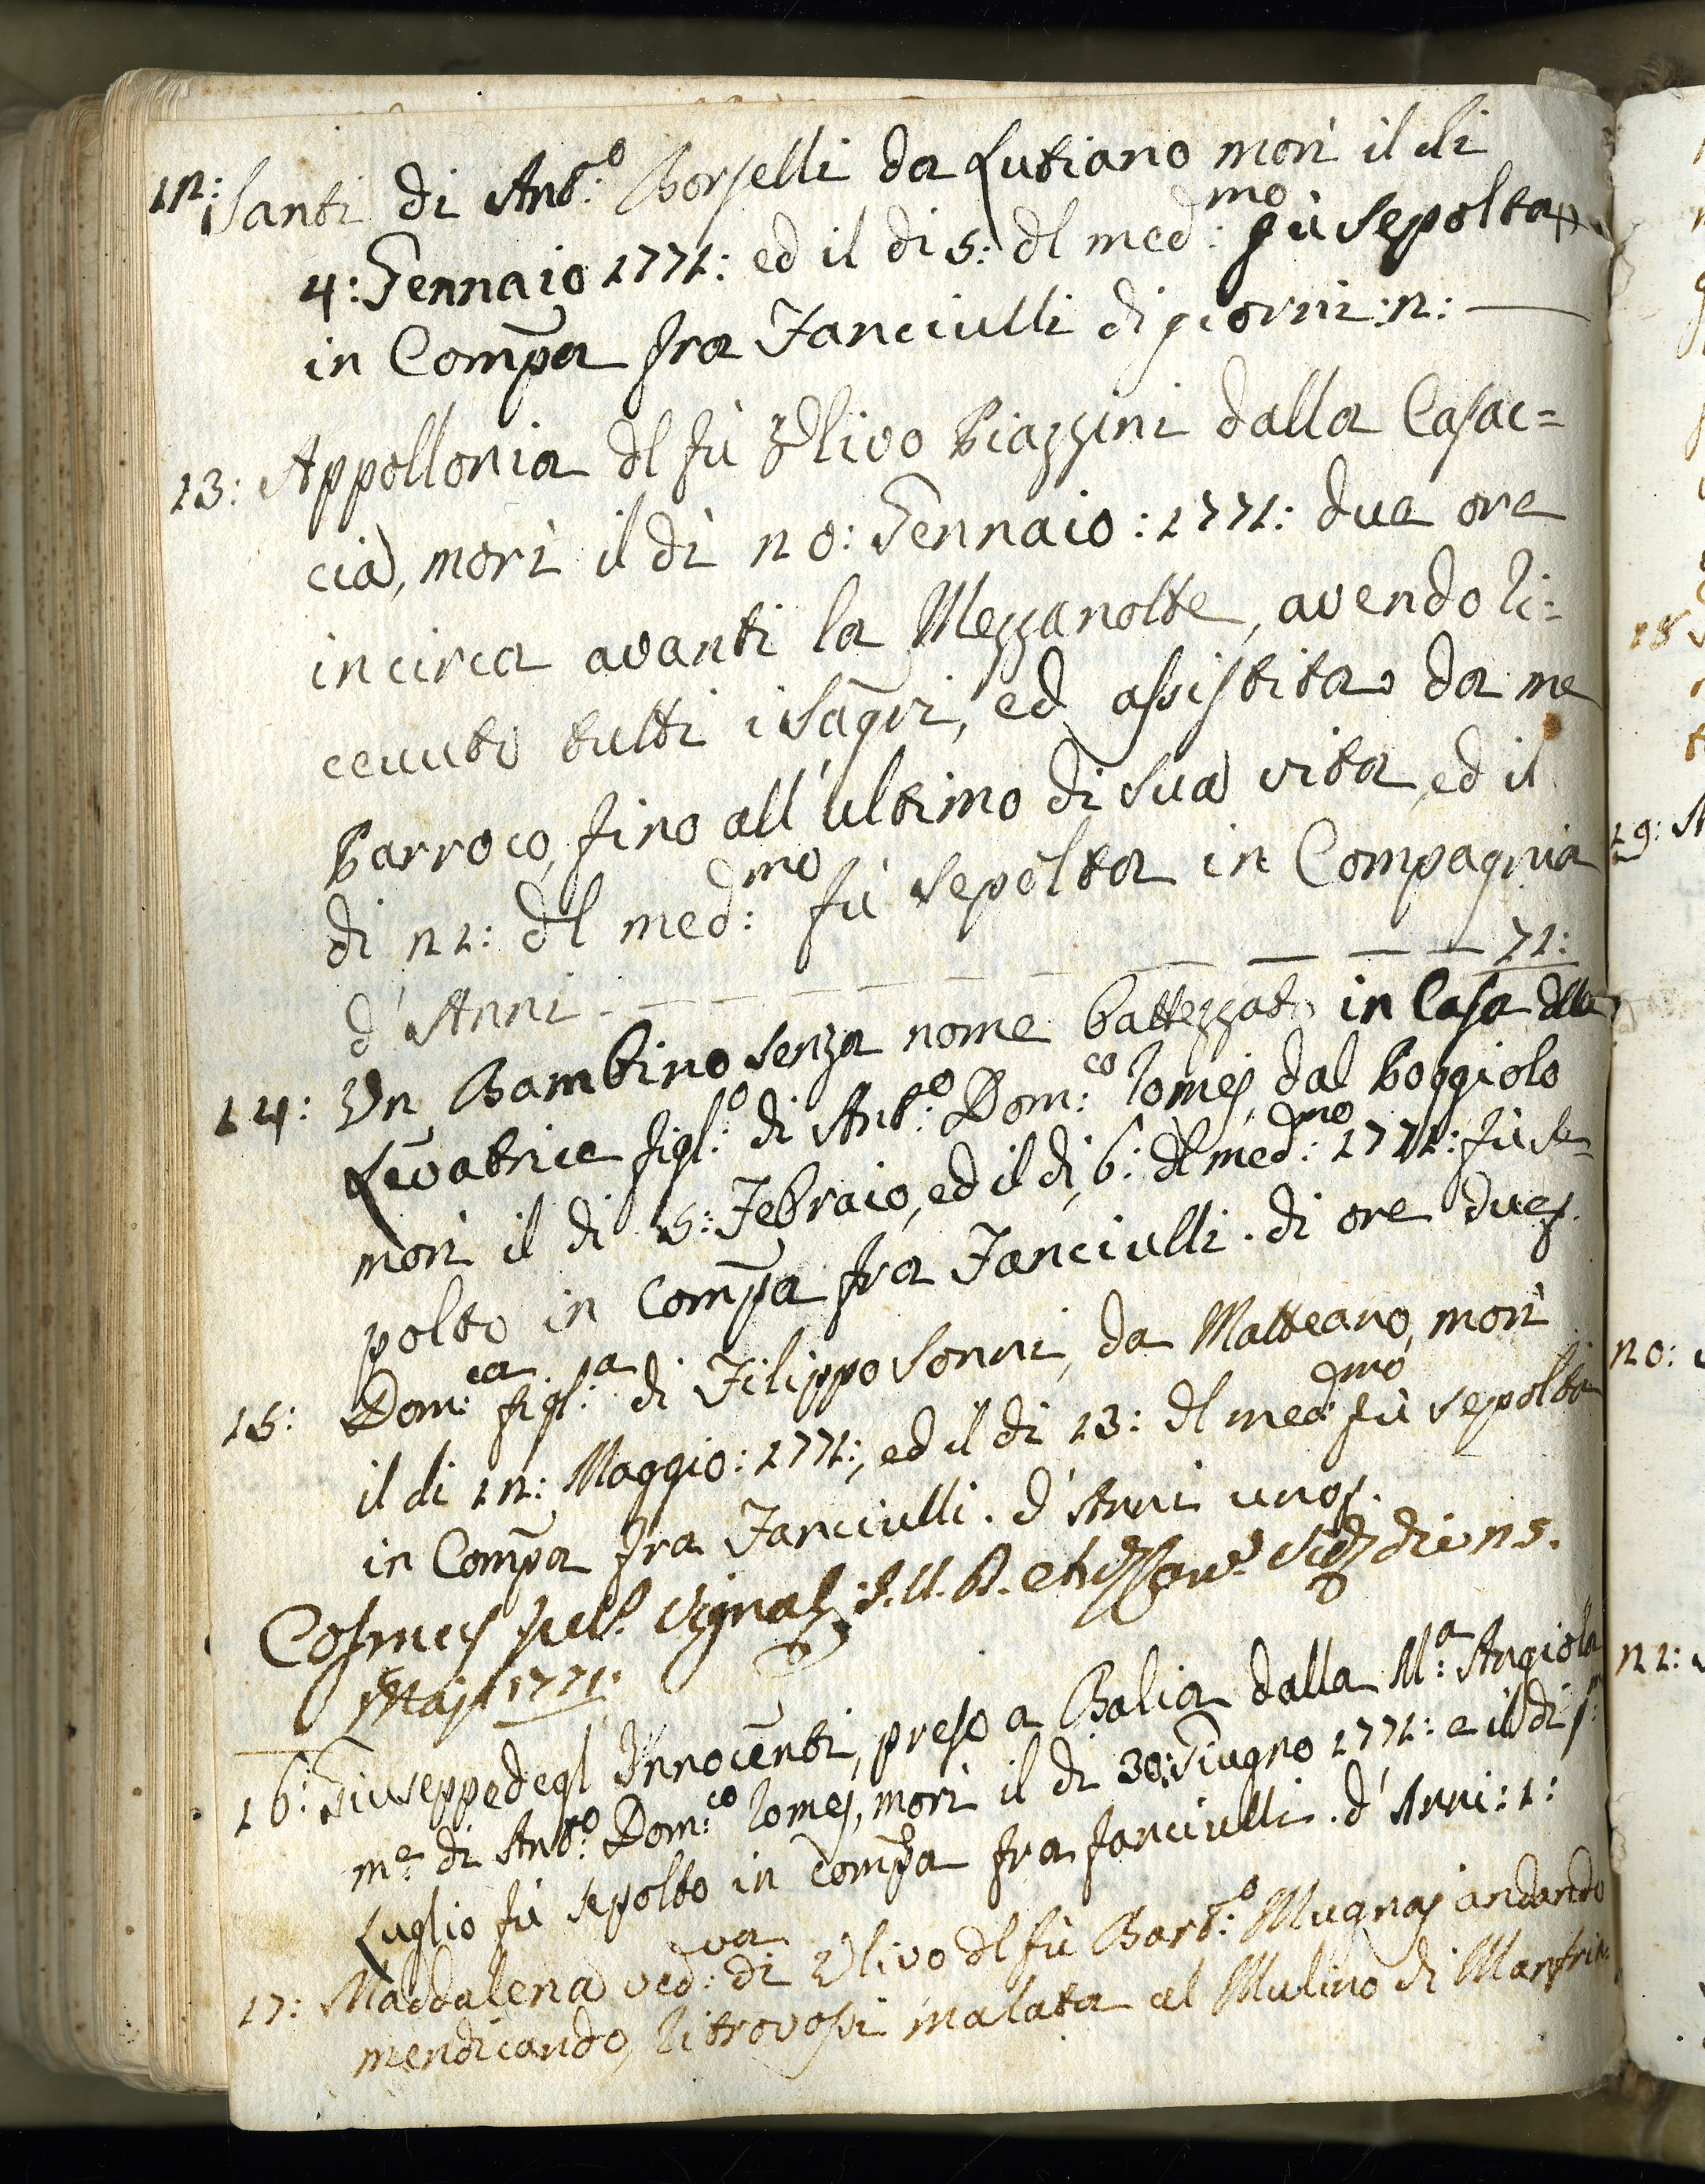 12: Santi di Ant:º Borselli da Lutiano morì il di
4: Gennaio 1771: ed il di 5: dl med:mo fù sepolta
in Compa fra Fanciulli di giorni: 2:
13: Appollonia dl fù Ulivo Piazzini dalla Casac=
cia, morì il dì 20: Gennaio: 1771: due ore
incirca avanti la Mezzanotte, avendo ri=
ceuuto tutti i Sagri, ed assistita da me
Parroco, fino all'ultimo di sua vita, ed il
di 21: dl med:mo fù sepolta in Compagnia
d'Anni — — — — — — — 71:
14: Un Bambino senza nome battezzato in Casa dlla
Levatrice figl:º di Ant:º Dom:co Romej, dal Poggiolo
morì il di 5: Febraio, ed il di, 6: dl med:mo 1771: fù se=
polto in Compa fra Fanciulli. di ore due
15: Dom:ca figl:a di Filippo Sonni, da Matteano, morì
il di 12: Maggio: 1771:, ed il di 13: dl med:mo fù sepolta
in Compa fra Fanciulli. d'Anni uno
Cosmus die 25.
Maji 1771:
16: Giuseppe degl Innocenti, preso a Balia dalla M:a Angiola
me di Ant:º Dom:co Romej, morì il di 30: Giugno 1771: e il di p:
Luglio fù sepolto in Compa fra fanciulli. d'Anni: 1:
17: Maddalena ved:va di Ulivo dl fù Bart:º Mugnaj andando
mendicando, ritrovosi malata al Mulino di
18
19:
20:
21: